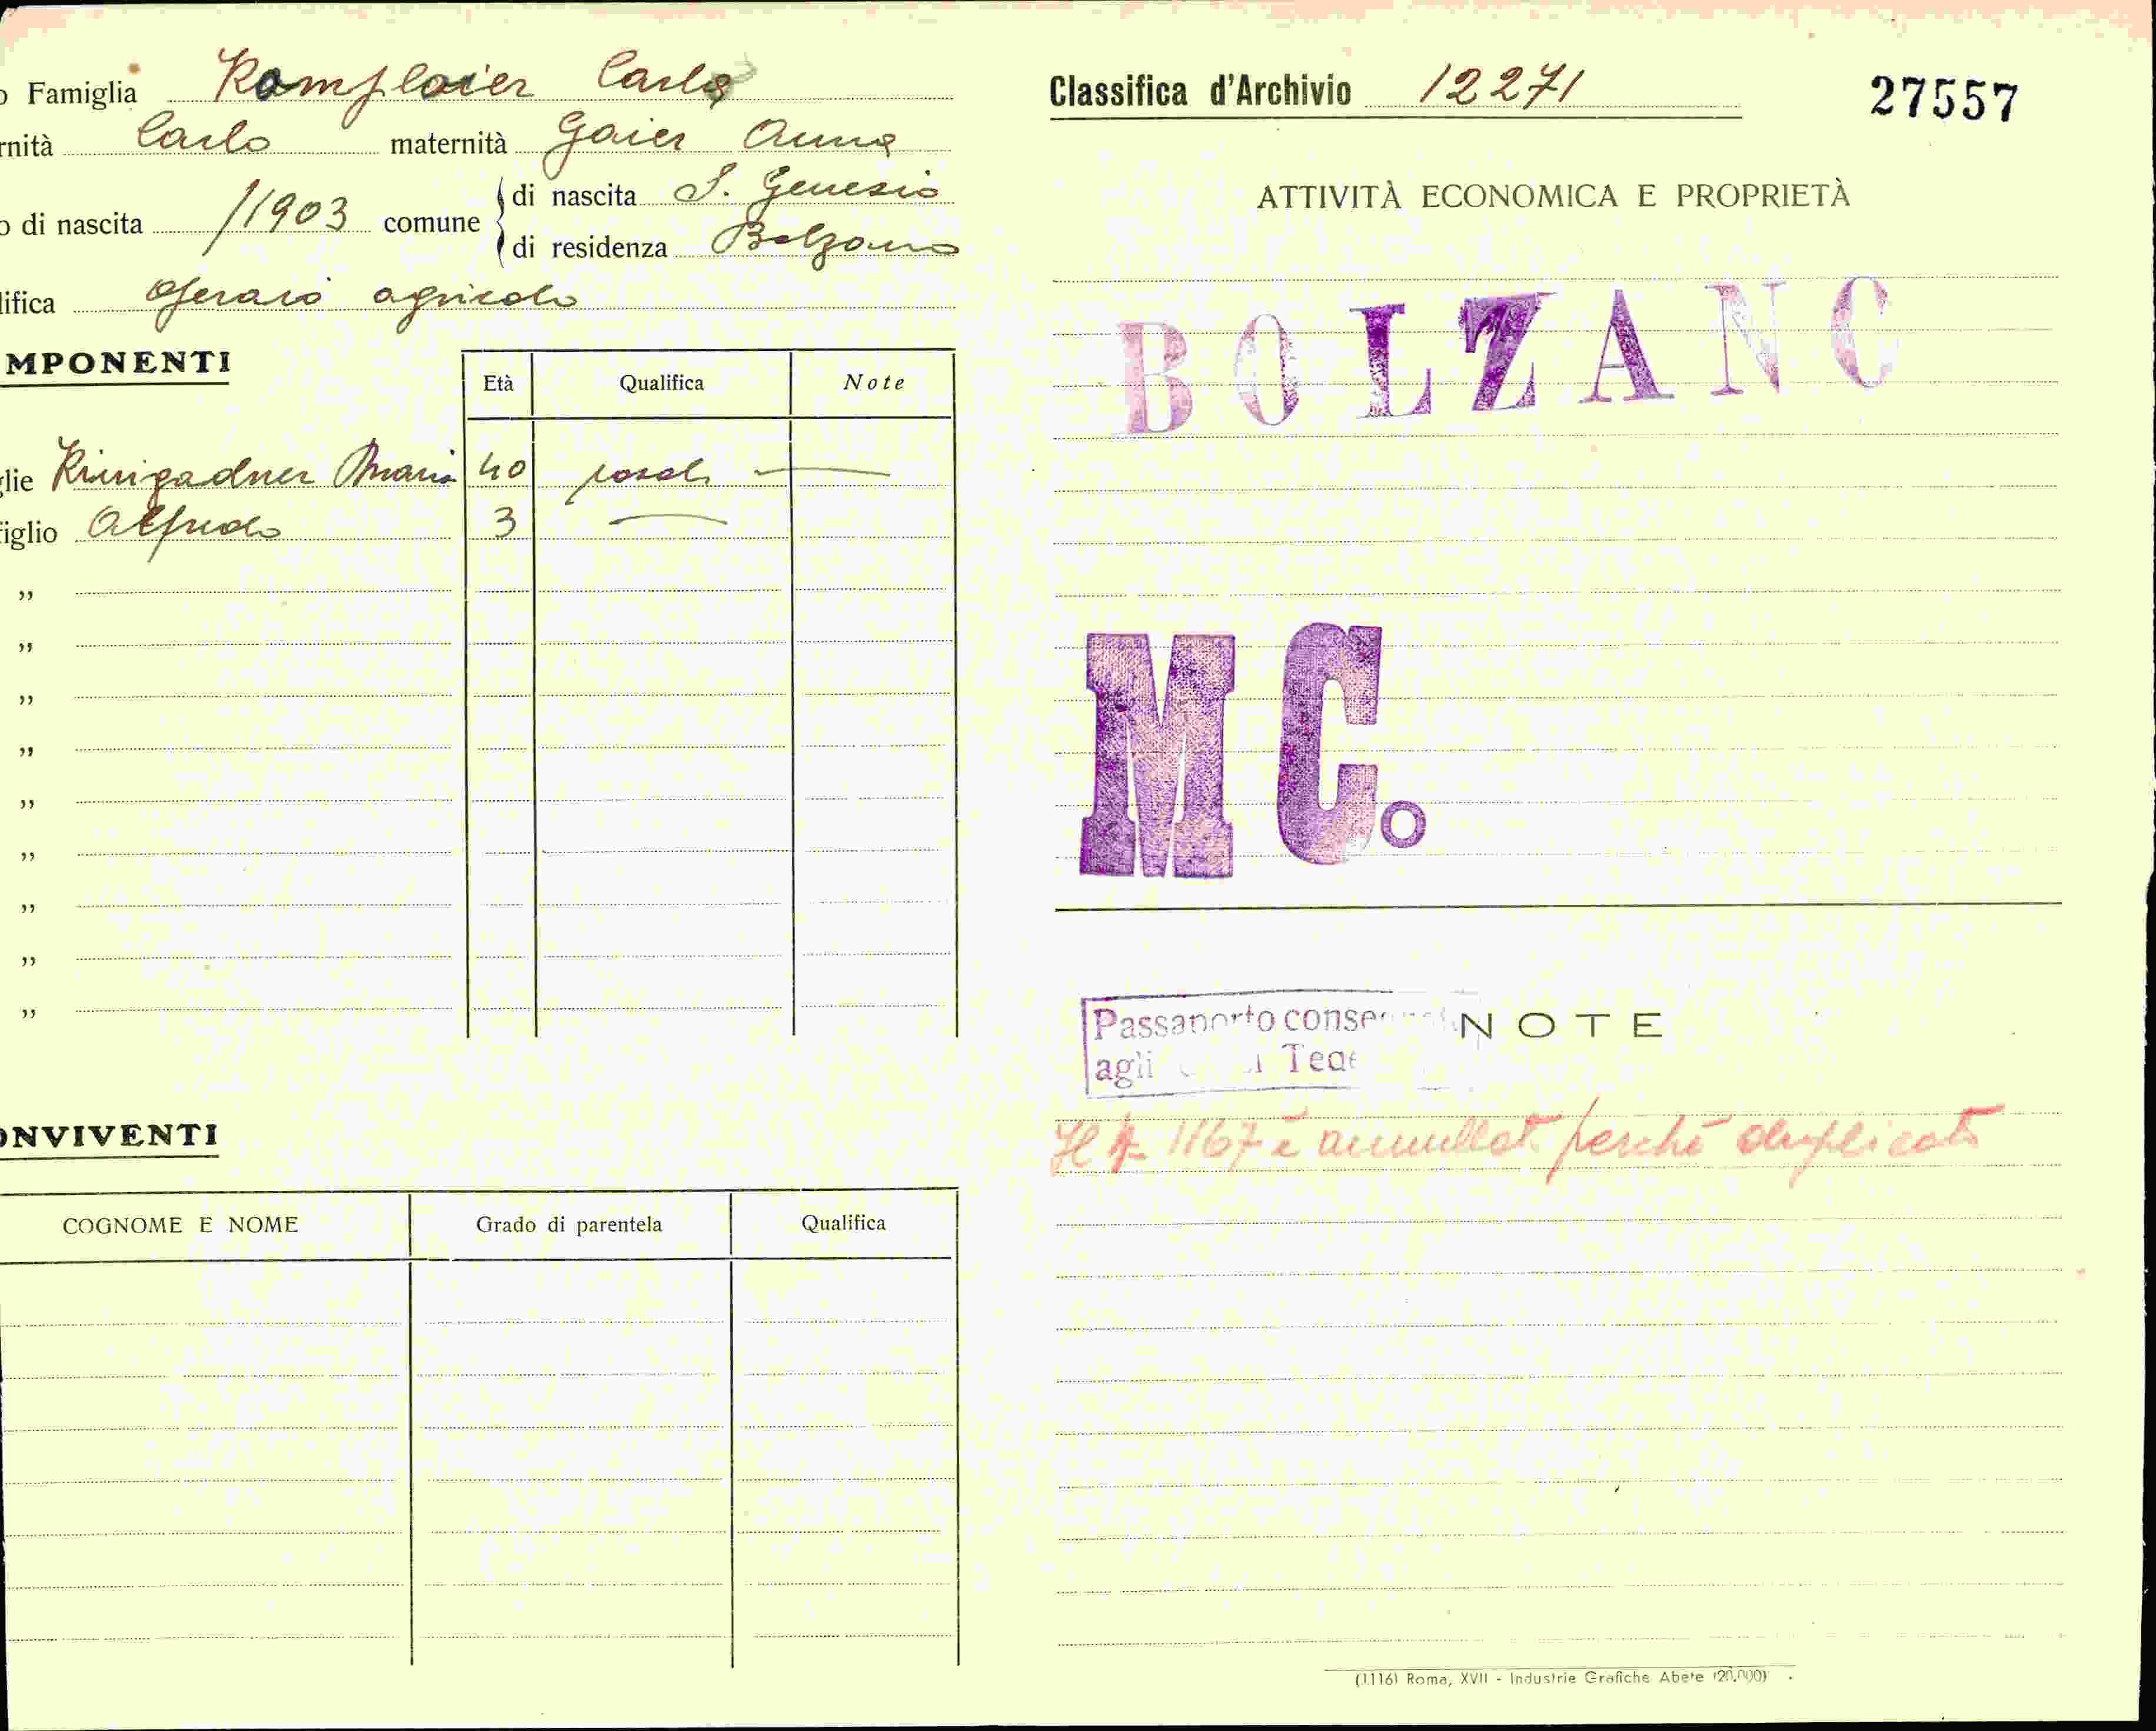 o Famiglia Romploier Carlo
rnità Carlo maternità Gaier Anna
o di nascita /1903 comune di nascita S. Genesio
di residenza Bolzano
lifica Operaio agricolo
MPONENTI
Età Qualifica Note
glie Kinigadner Maria 40 casal.
figlio Alfredo 3
„
„
„
„
„
„
„
„
„
ONVIVENTI
COGNOME E NOME Grado di parentela Qualifica
Classifica d'Archivio 12271 27557
ATTIVITÀ ECONOMICA E PROPRIETÀ
BOLZANO
MC.
Passaporto conse
agli Ted
NOTE
Il 1167 è annullato perché duplicato
(1116) Roma, XVII - Industrie Grafiche Abete (20.000)